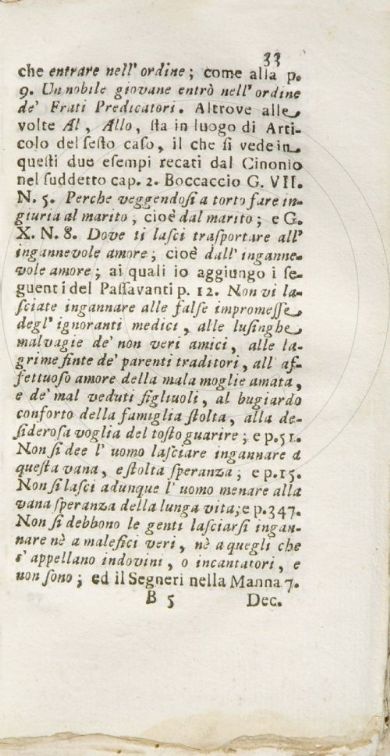 33
che entrare nell' ordine; come alla p.
9. Un nobile giovane entrò nell' ordine
de' Frati Predicatori. Altrove alle
volte Al, Allo, ſta in luogo di Arti-
colo del ſeſto caſo, il che ſi vede in
queſti due eſempi recati dal Cinonio
nel ſuddetto cap. 2. Boccaccio G. VII.
N. 5. Perche veggendoſi a torto fare in-
giuria al marito, cioè dal marito; e G.
X. N. 8. Dove ti laſci traſportare all'
ingannevole amore; cioè dall' inganne-
vole amore; ai quali io aggiungo i ſe-
guenti del Paſſavanti p. 12. Non vi la-
ſciate ingannare alle falſe impromeſſe
degl' ignoranti medici, alle luſinghe
malvagie de' non veri amici, alle la-
grime finte de' parenti traditori, all' af-
fettuoſo amore della mala moglie amata,
e de' mal veduti figliuoli, al bugiardo
conforto della famiglia ſtolta, alla de-
ſideroſa voglia del toſto guarire; e p. 51.
Non ſi dee l' uomo laſciare ingannare a
queſta vana, e ſtolta ſperanza; e p. 15.
Non ſi laſci adunque l' uomo menare alla
vana ſperanza della lunga vita; e p. 347.
Non ſi debbono le genti laſciarſi ingan-
nare nè a malefici veri, nè a quegli che
s' appellano indovini, o incantatori, e
non ſono; ed il Segneri nella Manna 7.
B 5 Dec.